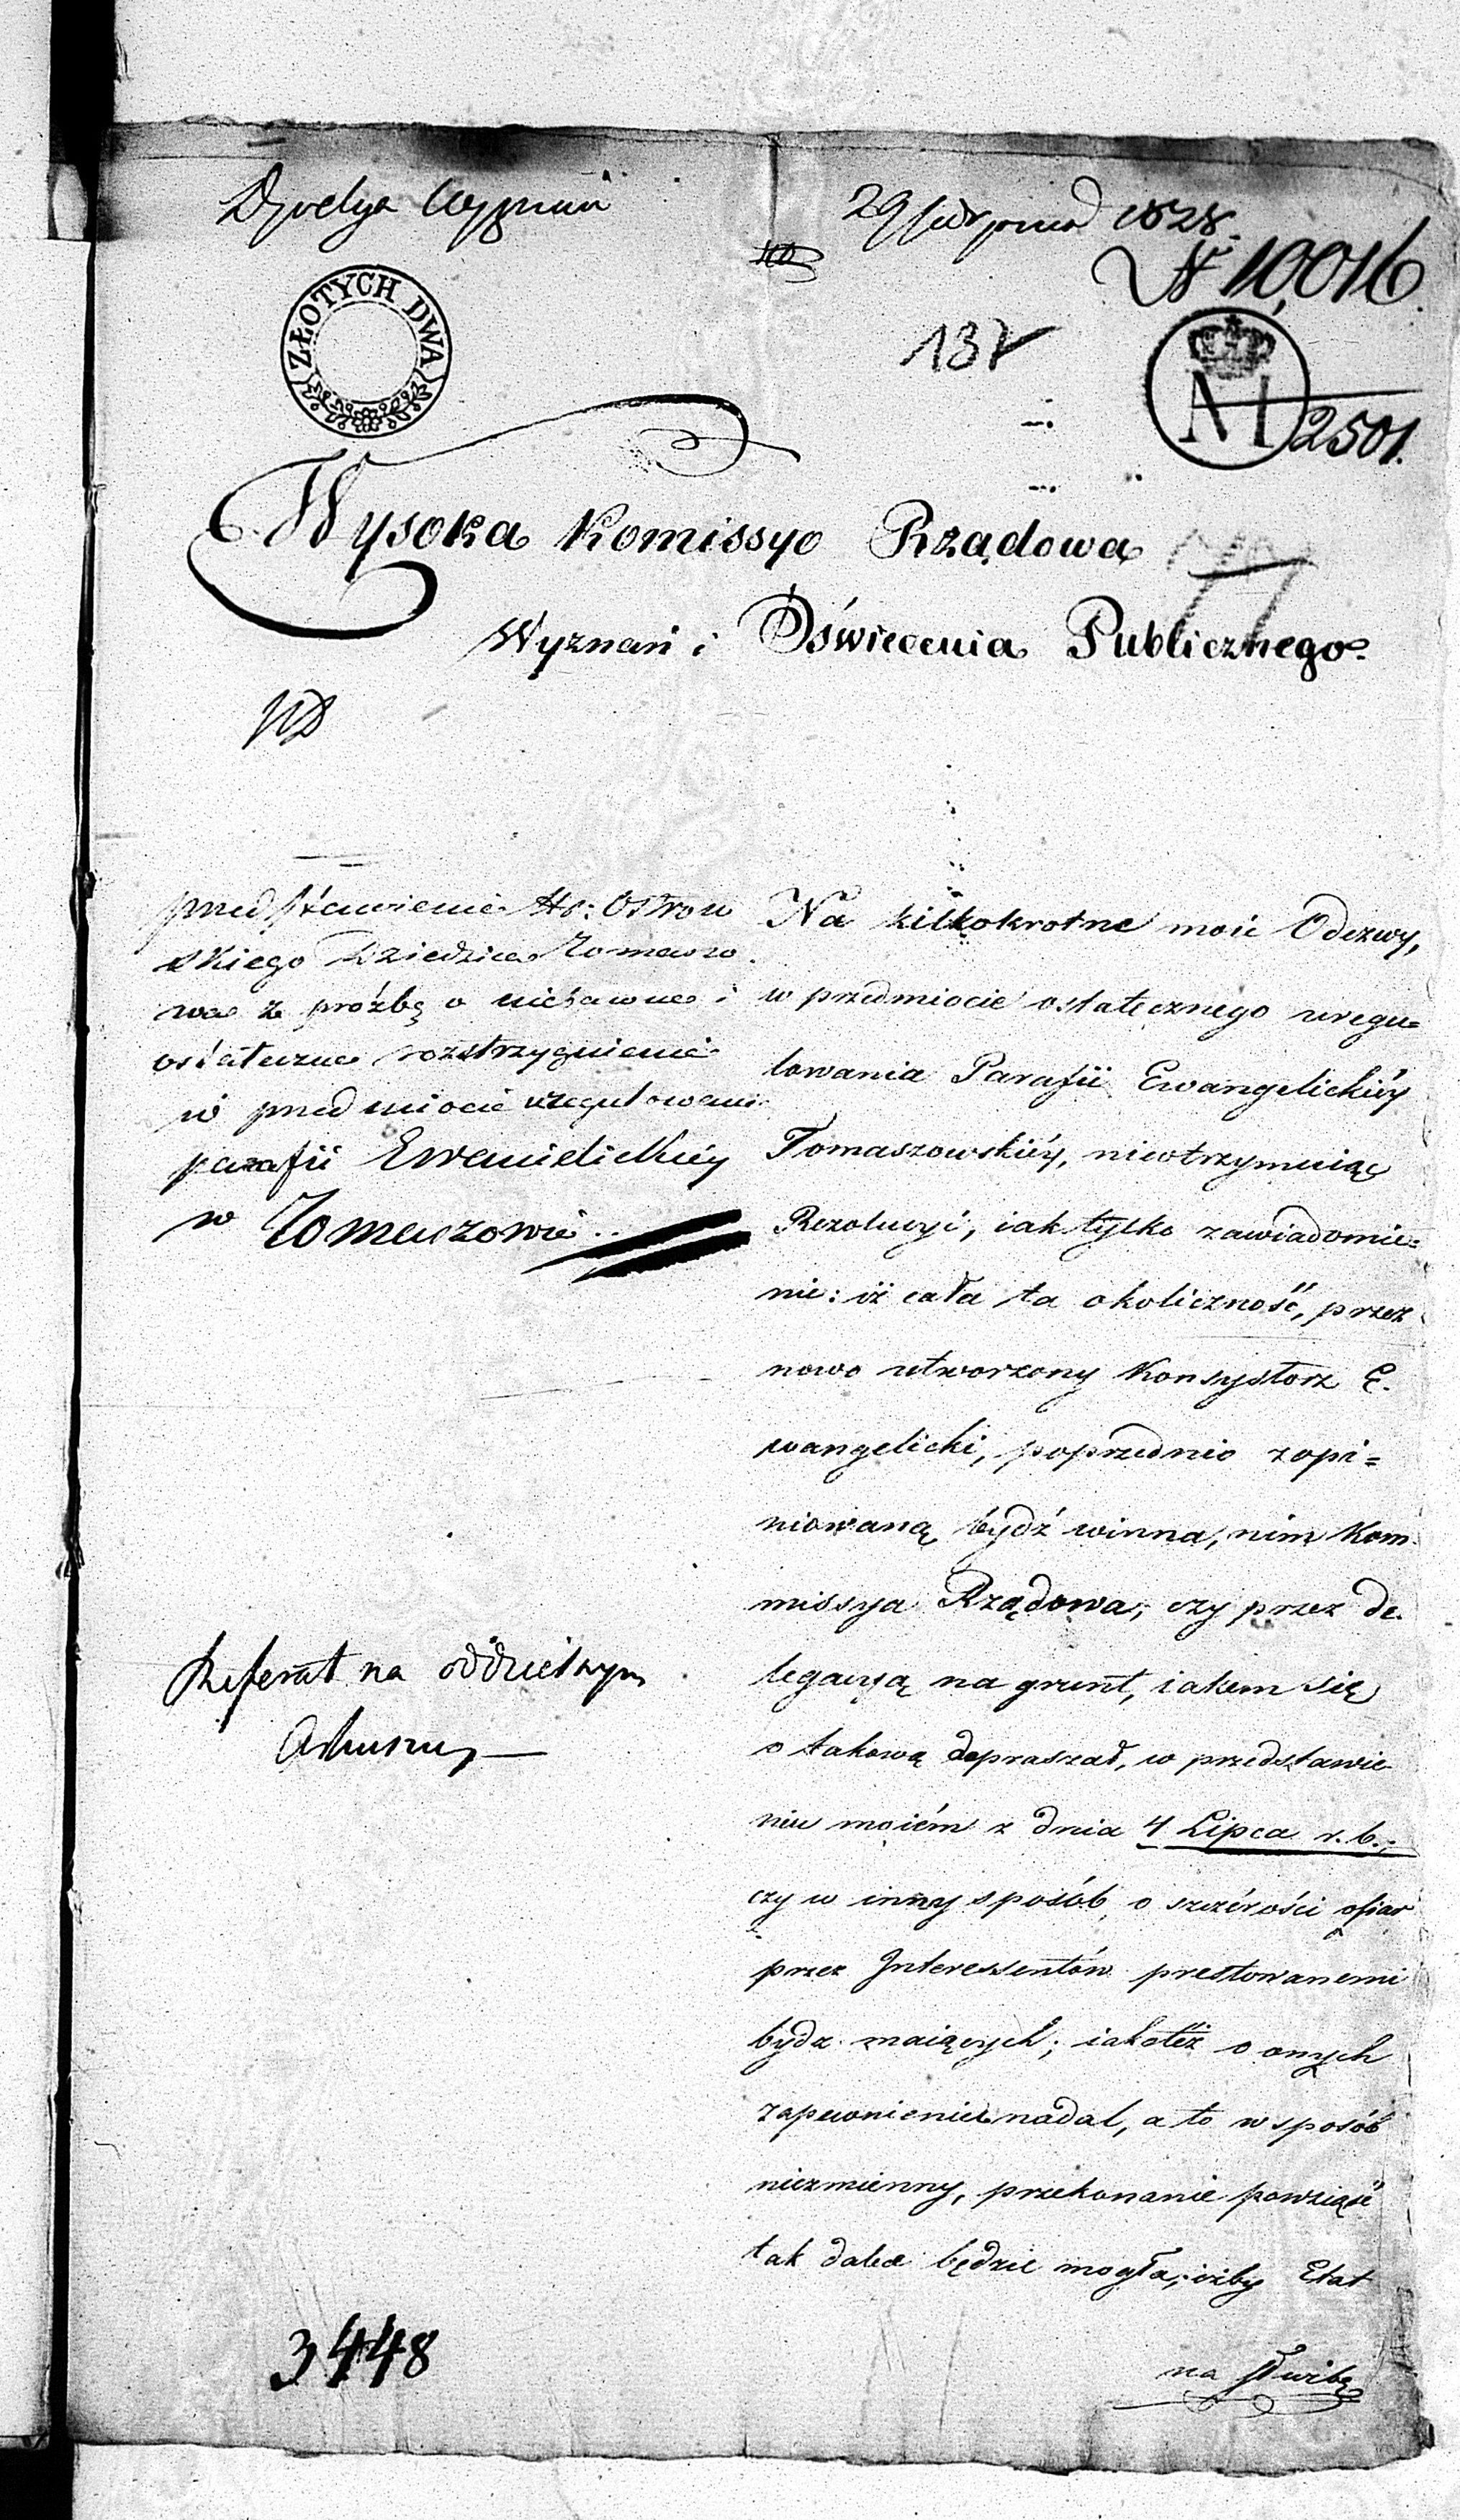 Dyrekcya Wyznań
29 sierpnia 1828.
N 10,016
137
ZŁOTYCH DWA
2501.
Wysoka Komissyo Rządowa
Wyznań i Oświecenia Publicznego.
przedstawienie Hr: Ostrow
skiego Dziedzica Tomaszo
wa z prożbą o nieżawne i
ostateczne rozstrzygnienie
w przedmiocie uregulowania
parafii Ewanielickiey
w Tomaszowie..
Na kilkokrotne moie Odezwy,
w przedmiocie ostatecznego uregu=
lowania Parafii Ewangelickiéy
Tomaszowskiéy, nieotrzymuiąc
Rezolucyi, iak tylko zawiadomie=
nie: iż cała ta okoliczność, przez
nowo utworzony Konsystorz E.
wangelicki, poprzednio zopi=
niowaną bydź winna, nim Kom.
missya Rządowa, czy przez de.
legacyą na grunt, iakem się
o takową dopraszał, w przedstawie
niu moiém z dnia 4 Lipca r. b.;
czy w inny sposób, o szczérości ofiar
przez Interessentów prestowanemi
bydz maiących; iakoteż o onych
zapewnienie nadal, a to w sposób
niezmienny, przekonanie powziąść
tak dalece będzie mogła, iżby Etat
na służbę
Referat na oddzielnym
Arkuszu
3448